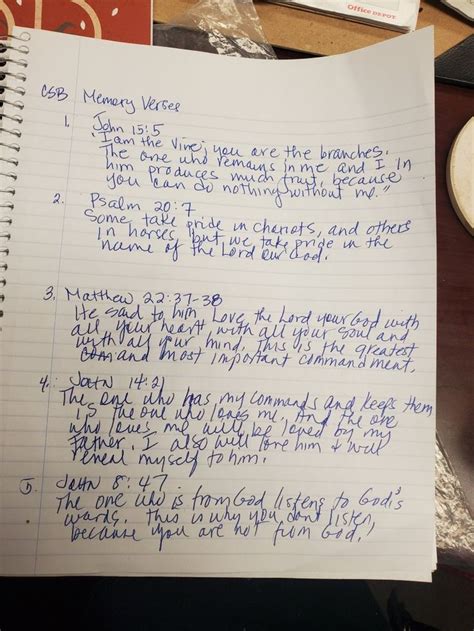 Office DEPOT
CSB Memory Verses
1. John 15:5
"I am the vine; you are the branches.
The one who remains in me and I in
him produces much fruit, because
you can do nothing without me."
2. Psalm 20:7
Some take pride in chariots, and others
in horses, but we take pride in the
name of the Lord our God.
3. Matthew 22:37-38
He said to him, Love the Lord your God with
all your heart, with all your soul and
with all your mind. This is the greatest
and most important commandment.
4. John 14:21
The one who has my commands and keeps them
is the one who loves me. And the one
who loves me will be loved by my
Father. I also will love him & will
reveal myself to him.
5. John 8:47
The one who is from God listens to God's
words. This is why you don't listen,
because you are not from God.